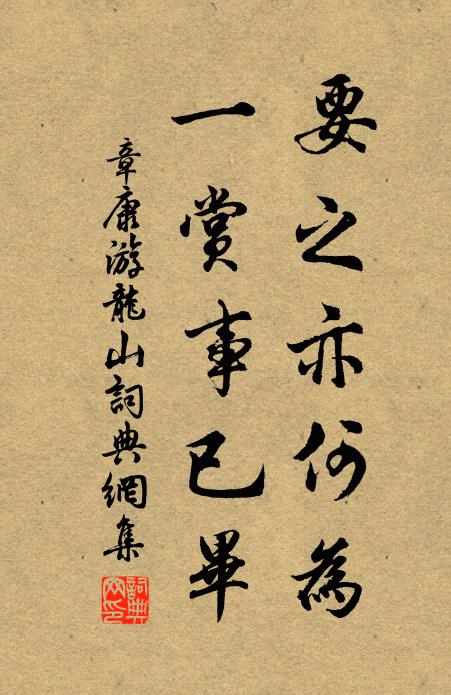 要之亦何為
一賞事已畢
章康游龍山詞典網集
詞典网印